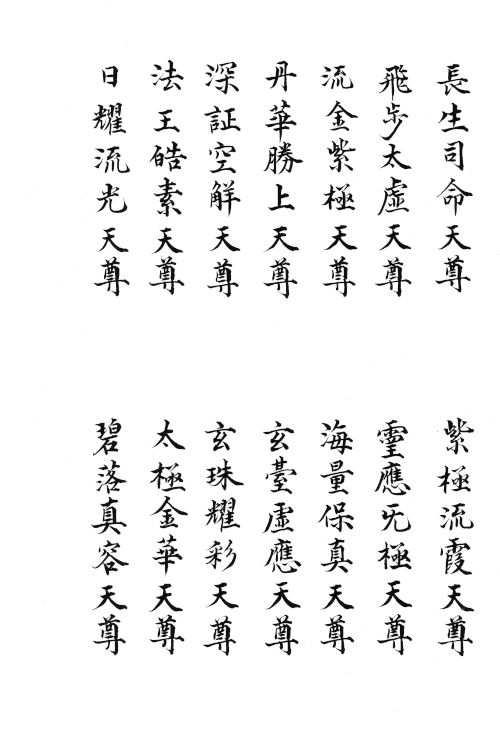 長生司命天尊
飛步太虛天尊
流金紫極天尊
丹華勝上天尊
深証空解天尊
法王皓素天尊
日耀流光天尊
紫極流霞天尊
靈應旡極天尊
海量保真天尊
玄臺虛應天尊
玄珠耀彩天尊
太極金華天尊
碧落真容天尊